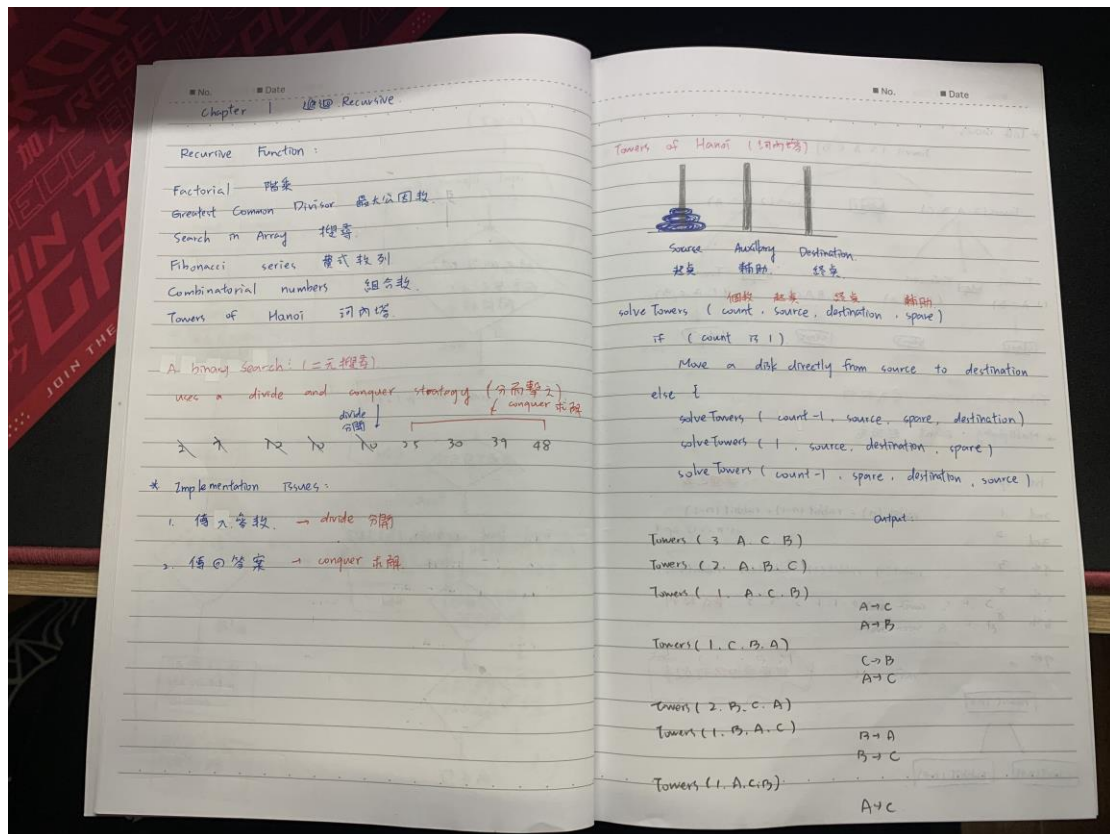 ■ No. ■ Date
Chapter 1 遞迴 Recursive
Recursive Function :
Factorial 階乘
Greatest Common Divisor 最大公因數.
Search in Array 搜尋.
Fibonacci series 費式數列
Combinatorial numbers 組合數.
Towers of Hanoi 河內塔.
A binary search: (二元搜尋)
uses a divide and conquer strategy (分而擊之)
divide 分開 conquer 求解
2 7 10 25 30 39 48
* Implementation Issues:
1. 傳入參數. → divide 分開
2. 傳回答案 → conquer 求解
■ No. ■ Date
Towers of Hanoi (河內塔)
Source Auxiliary Destination
起點 輔助. 終點.
個數 起點 終點 輔助
solve Towers ( count, source, destination, spare)
if ( count is 1)
Move a disk directly from source to destination
else {
solve Towers ( count-1, source, spare, destination)
solve Towers ( 1, source, destination, spare)
solve Towers ( count-1, spare, destination, source)
Output:
Towers ( 3 A. C. B)
Towers ( 2. A. B. C)
Towers ( 1. A. C. B)
A→C
A→B
Towers ( 1. C. B. A)
C→B
A→C
Towers ( 2. B. C. A)
Towers ( 1. B. A. C)
B→A
B→C
Towers (1. A. C. B)
A→C
JOIN THE